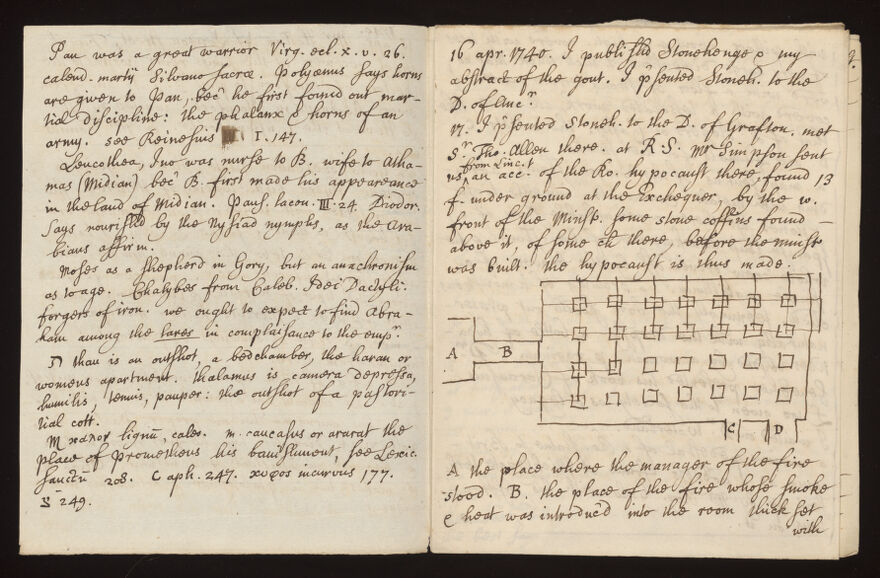 Pan was a great warrior Virg. ecl. x. v. 26.
calend. martij Silvano sacræ. Polyænus says horns
are given to Pan, bec. he first found out mar-
tial discipline: the phalanx & horns of an
army. see Reinesius I. 147.
Leucothea, Ino was nurse to B. wife to Atha-
mas (Midian) bec. B. first made his appearance
in the land of Midian. Paus. lacon. III. 24. Diodor.
says nourish'd by the Nysiad nymphs, as the Ara-
bians affirm.
Moses as a shepherd in Gory, but an anachronism
as to age. Chalybes from Caleb. Idei Dactyli.
forgers of iron. we ought to expect to find Abra-
ham among the lares in complaisance to the empr.
ת thau is an outshot, a bedchamber, the haran or
womens apartment. thalamus is camera depressa,
humilis, tenuis, pauper: the outshot of a pastori-
tial cott.
lignū, cales. m. caucasus or ararat the
place of Prometheus his banishment, see Lexic.
sanctū 208. Caph. 247. incurvus 177.
249.
16 apr. 1740. I publish'd Stonehenge & my
abstract of the gout. I p'sented Stoneh. to the
D. of Anc.r
17. I p'sented Stoneh. to the D. of Grafton. met
Sr. Tho. Allen there. at R.S. Mr Simpson sent
from Linc.
us, an acc.t of the Ro. hypocaust there, found 13
f. under ground at the Exchequer, by the w.
front of the Minstr. some stone coffins found
above it, of some ch there, before the minstr
was built. the hypocaust is thus made.
A B
C D
A the place where the manager of the fire
stood. B. the place of the fire whose smoke
& heat was introduc'd into the room thick set
with